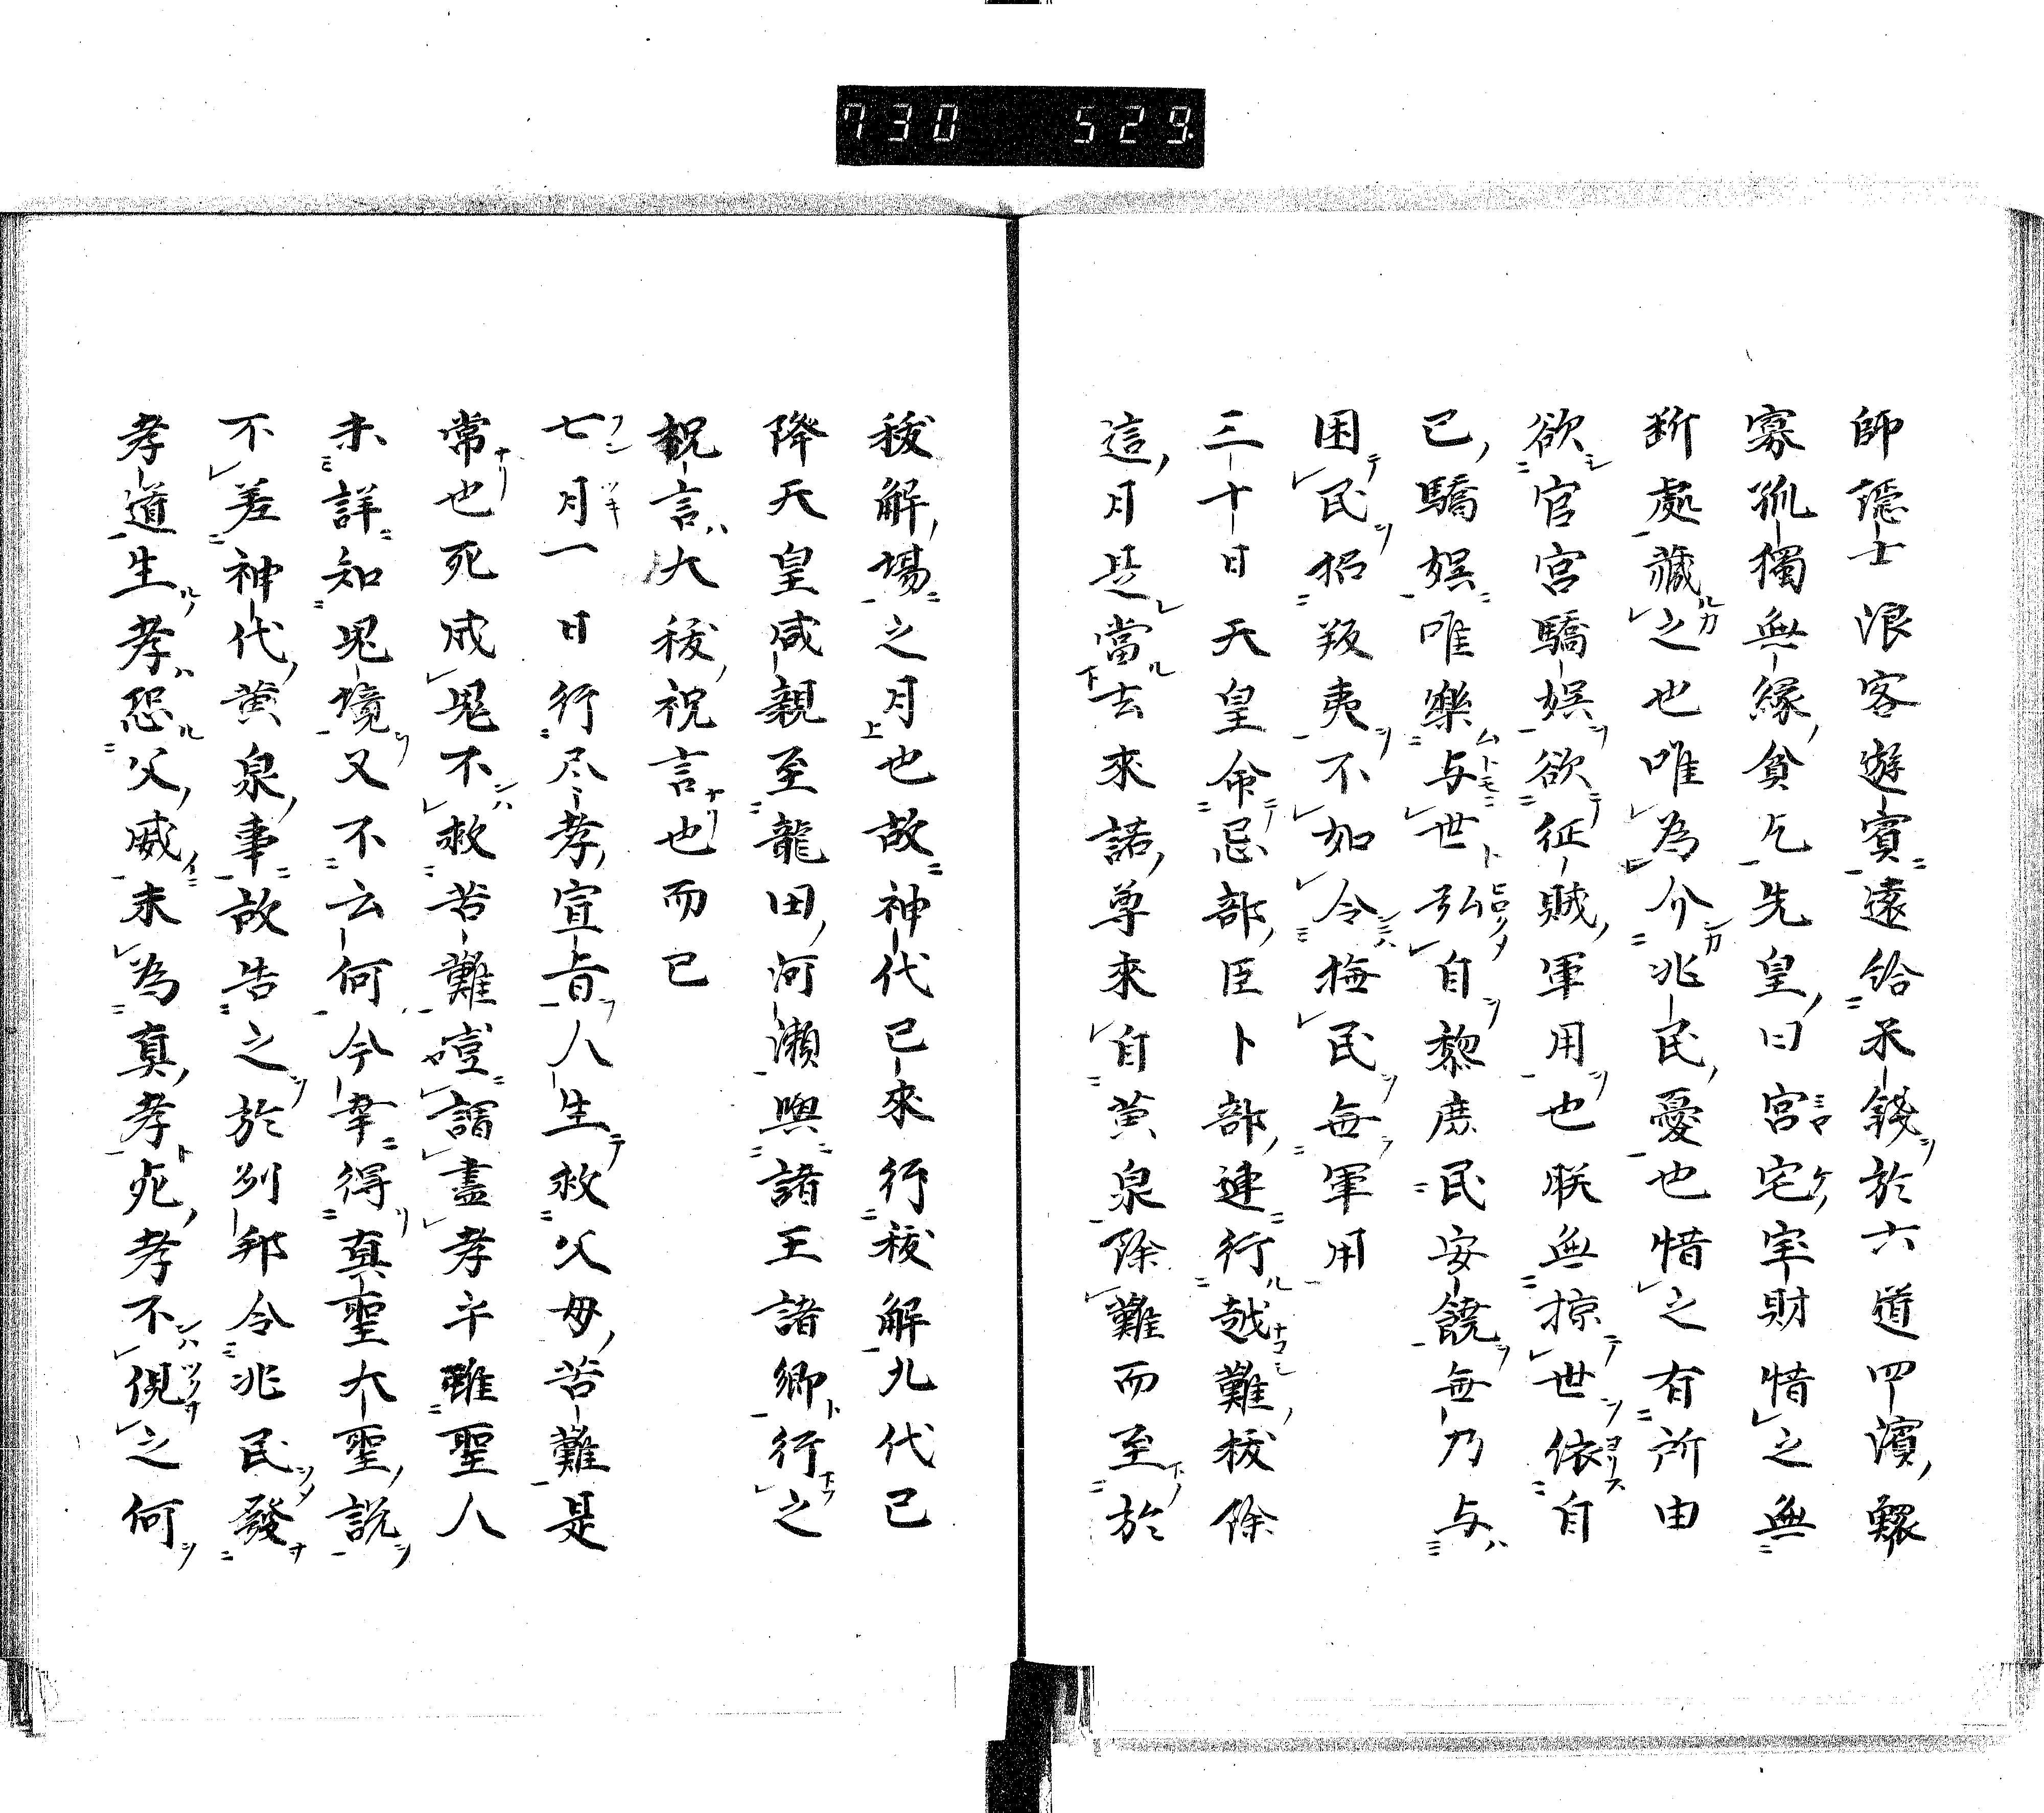 730 529
師隱士浪客遊賓遠給米錢於六道四濱鰥
寡孤獨無縁貧乞先皇曰宮宅宰財惜之無
斯處藏之也唯為介兆民憂也惜之有所由
欲官宮驕娯欲征賊軍用也朕無掠世依自
已驕娯唯樂与世弘自黎庶民安饒無乃与
困民招叛夷不如令撫民毎軍用
三十日天皇命忌部臣卜部連行越難祓除
這月是當去來諾尊來自黄泉除難而至於
祓解場之月也故神代已來行祓解凢代已
降天皇咸親至龍田河瀬與諸王諸卿行之
祝言大祓祝言也而已
七月一日行尽孝宣旨人生救父母苦難是
常也死成鬼不救苦難噎謂盡孝乎雖聖人
未詳知鬼境又不云何今幸得真聖大聖説
不差神代黄泉事故告之於別邦令兆民發
孝道生孝恐父威未為真孝死孝不俔之何